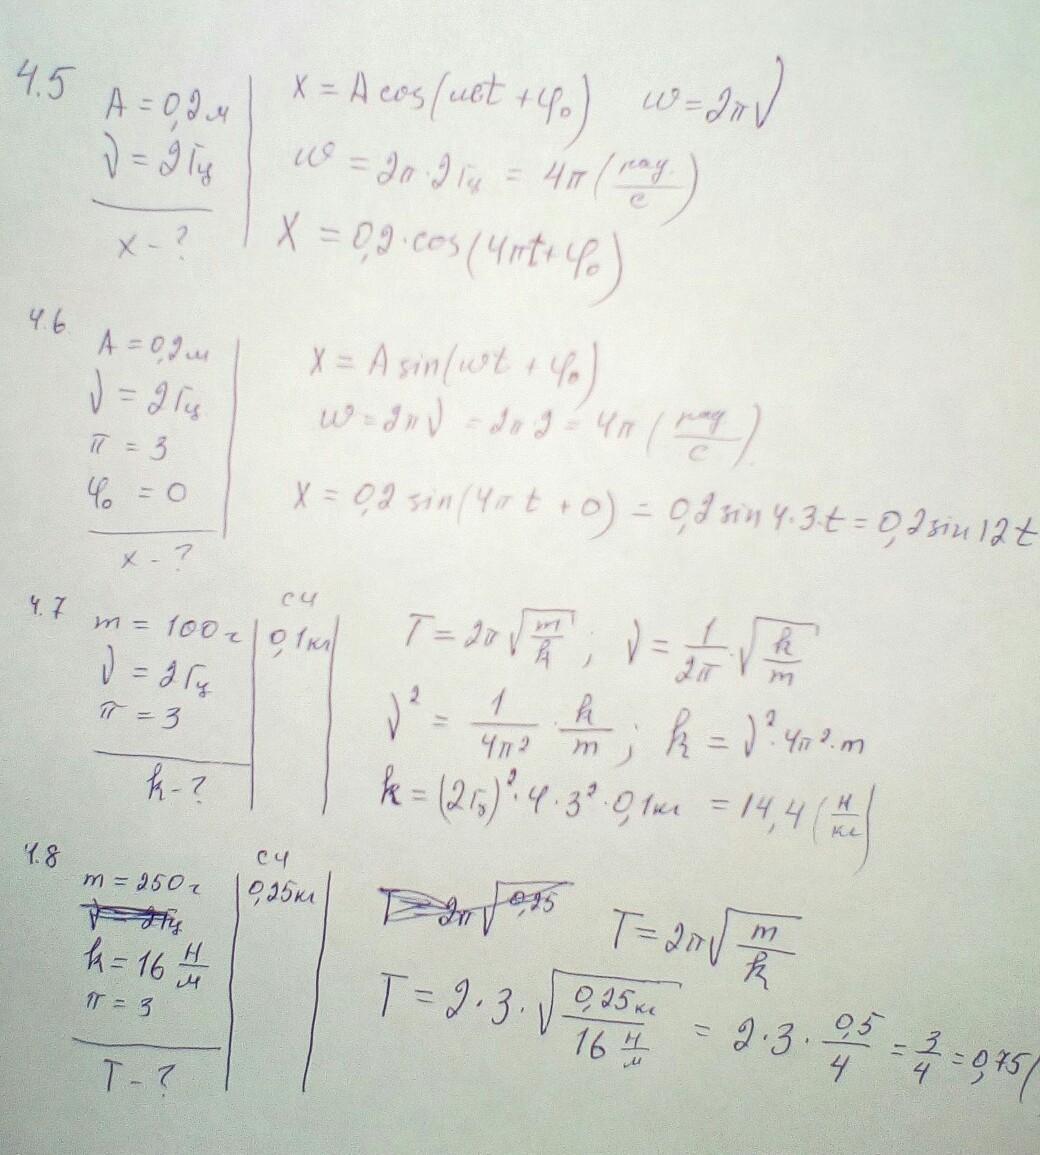 4.5
A = 0,2м
ν = 2Гц
x - ?
x = A cos(ωt + φ₀) ω = 2πν
ω = 2π·2Гц = 4π (рад/с)
X = 0,2·cos(4πt+φ₀)
4.6
A = 0,2м
ν = 2Гц
π = 3
φ₀ = 0
x - ?
x = A sin(ωt + φ₀)
ω = 2πν = 2π·2 = 4π (рад/с)
x = 0,2 sin(4πt + 0) = 0,2 sin 4·3·t = 0,2 sin 12t
4.7
СЧ
m = 100г 0,1кг
ν = 2Гц
π = 3
k - ?
T = 2π√(m/k) ; ν = 1/2π · √(k/m)
ν² = 1/4π² · k/m ; k = ν²·4π²·m
k = (2Гц)²·4·3²·0,1кг = 14,4 (н/кг)
4.8
СЧ
m = 250г 0,25кг
k = 16 Н/м
π = 3
T - ?
T = 2π√(m/k)
T = 2·3·√(0,25кг/16 Н/м) = 2·3·0,5/4 = 3/4 = 0,75(